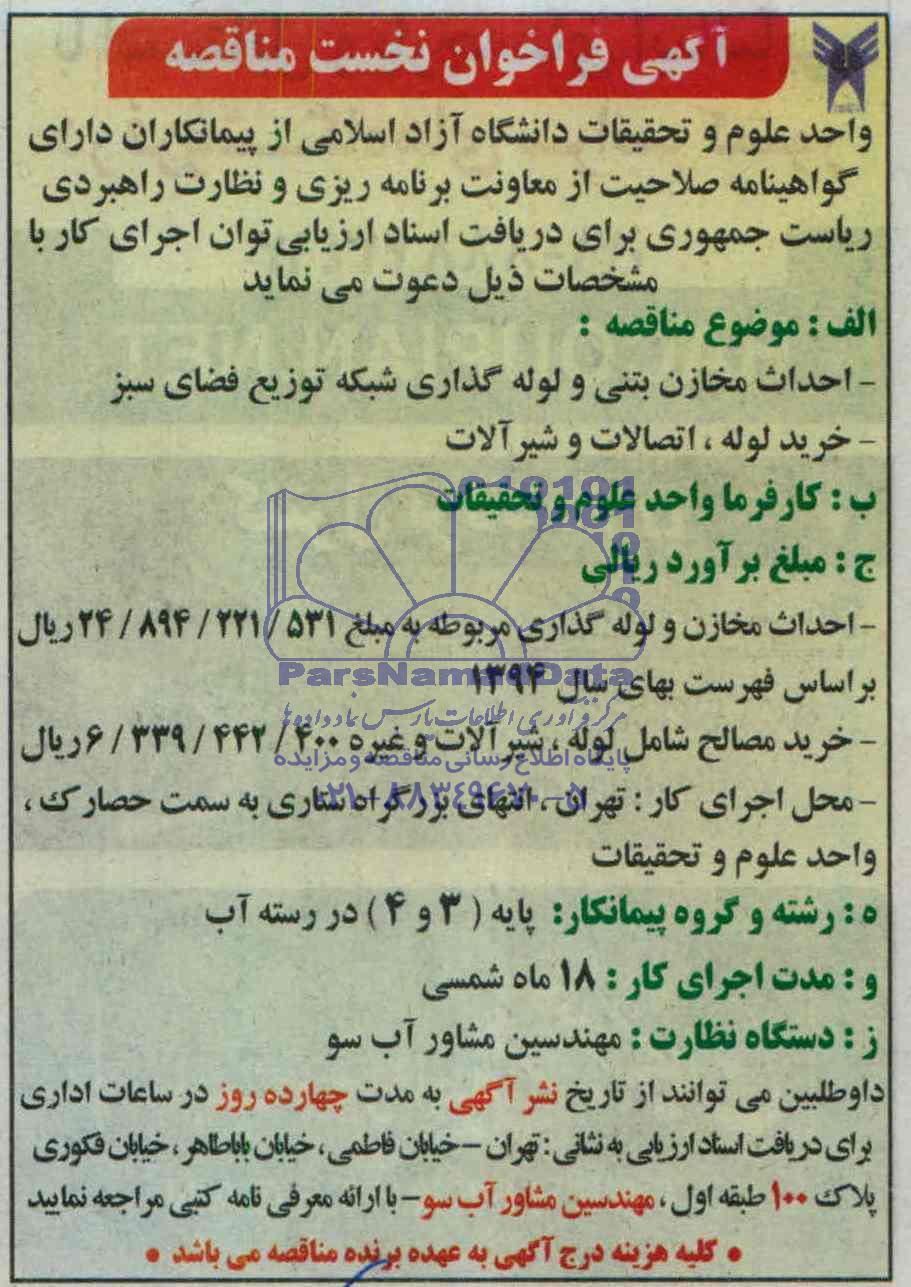 آگهی فراخوان نخست مناقصه
واحد علوم و تحقیقات دانشگاه آزاد اسلامی از پیمانکاران دارای
گواهینامه صلاحیت از معاونت برنامه ریزی و نظارت راهبردی
ریاست جمهوری برای دریافت اسناد ارزیابی توان اجرای کار با
مشخصات ذیل دعوت می نماید
الف : موضوع مناقصه :
- احداث مخازن بتنی و لوله گذاری شبکه توزیع فضای سبز
- خرید لوله ، اتصالات و شیرآلات
ب : کارفرما واحد علوم و تحقیقات
ج : مبلغ برآورد ریالی
- احداث مخازن و لوله گذاری مربوطه به مبلغ ۵۳۱ / ۲۲۱ / ۸۹۴ / ۲۴ ریال
براساس فهرست بهای سال ۱۳۹۴
ParsNamadData
مرکز فرآوری اطلاعات پارس نماد داده‌ها
- خرید مصالح شامل لوله ، شیرآلات و غیره ۴۰۰ / ۴۴۲ / ۳۳۹ / ۶ ریال
پایگاه اطلاع رسانی مناقصه و مزایده
- محل اجرای کار : تهران ، انتهای بزرگراه ستاری به سمت حصارک ،
۰۲۱-۸۸۳۴۹۶۷۰-۵
واحد علوم و تحقیقات
ه : رشته و گروه پیمانکار: پایه ( ۳ و ۴ ) در رسته آب
و : مدت اجرای کار : ۱۸ ماه شمسی
ز : دستگاه نظارت : مهندسین مشاور آب سو
داوطلبین می توانند از تاریخ نشر آگهی به مدت چهارده روز در ساعات اداری
برای دریافت اسناد ارزیابی به نشانی : تهران - خیابان فاطمی ، خیابان باباطاهر ، خیابان فکوری
پلاک ۱۰۰ طبقه اول ، مهندسین مشاور آب سو - با ارائه معرفی نامه کتبی مراجعه نمایید
• کلیه هزینه درج آگهی به عهده برنده مناقصه می باشد •